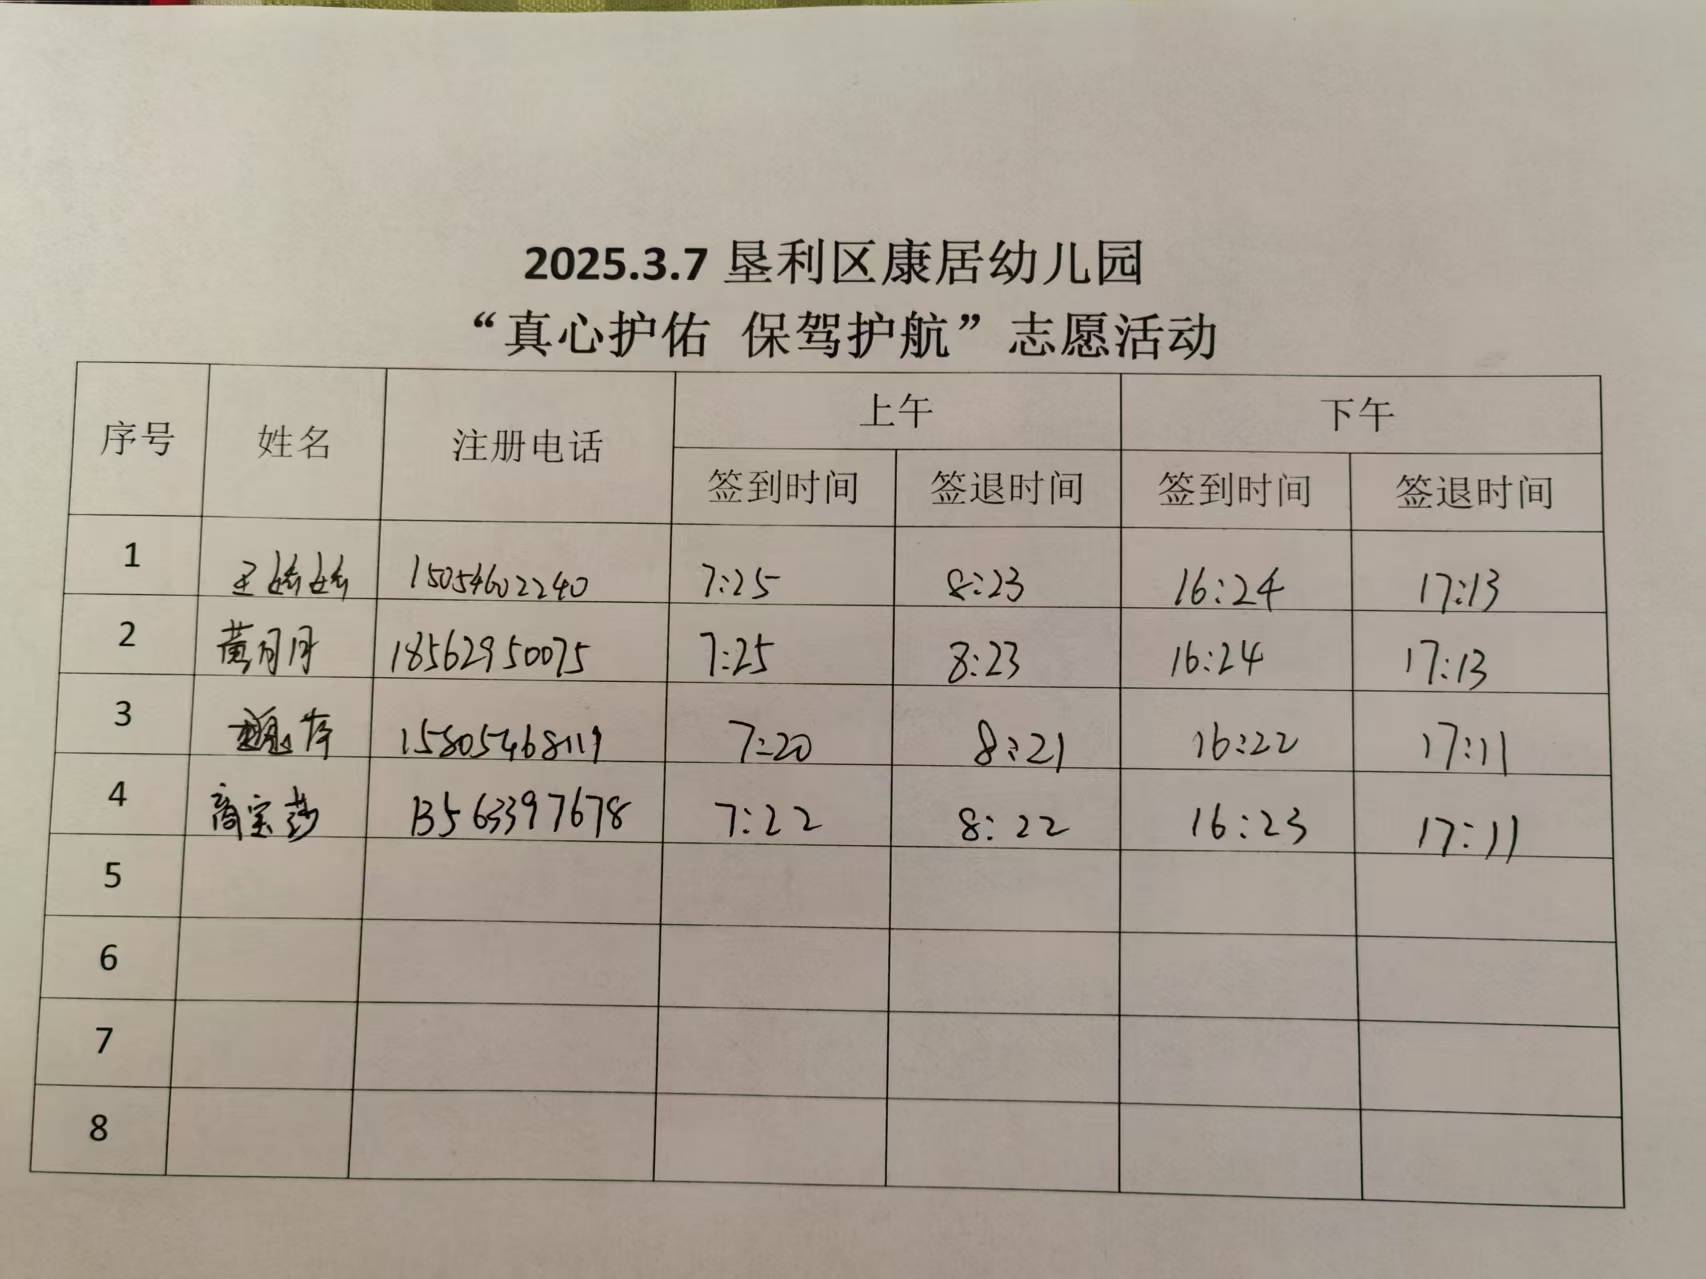 2025.3.7 垦利区康居幼儿园
“真心护佑 保驾护航”志愿活动
序号 姓名 注册电话 上午 下午
签到时间 签退时间 签到时间 签退时间
1 王 15054602240 7:25 8:23 16:24 17:13
2 黄月月 18562950075 7:25 8:23 16:24 17:13
3 15805468119 7:20 8:21 16:22 17:11
4 商宝莎 13563397678 7:22 8:22 16:23 17:11
5
6
7
8